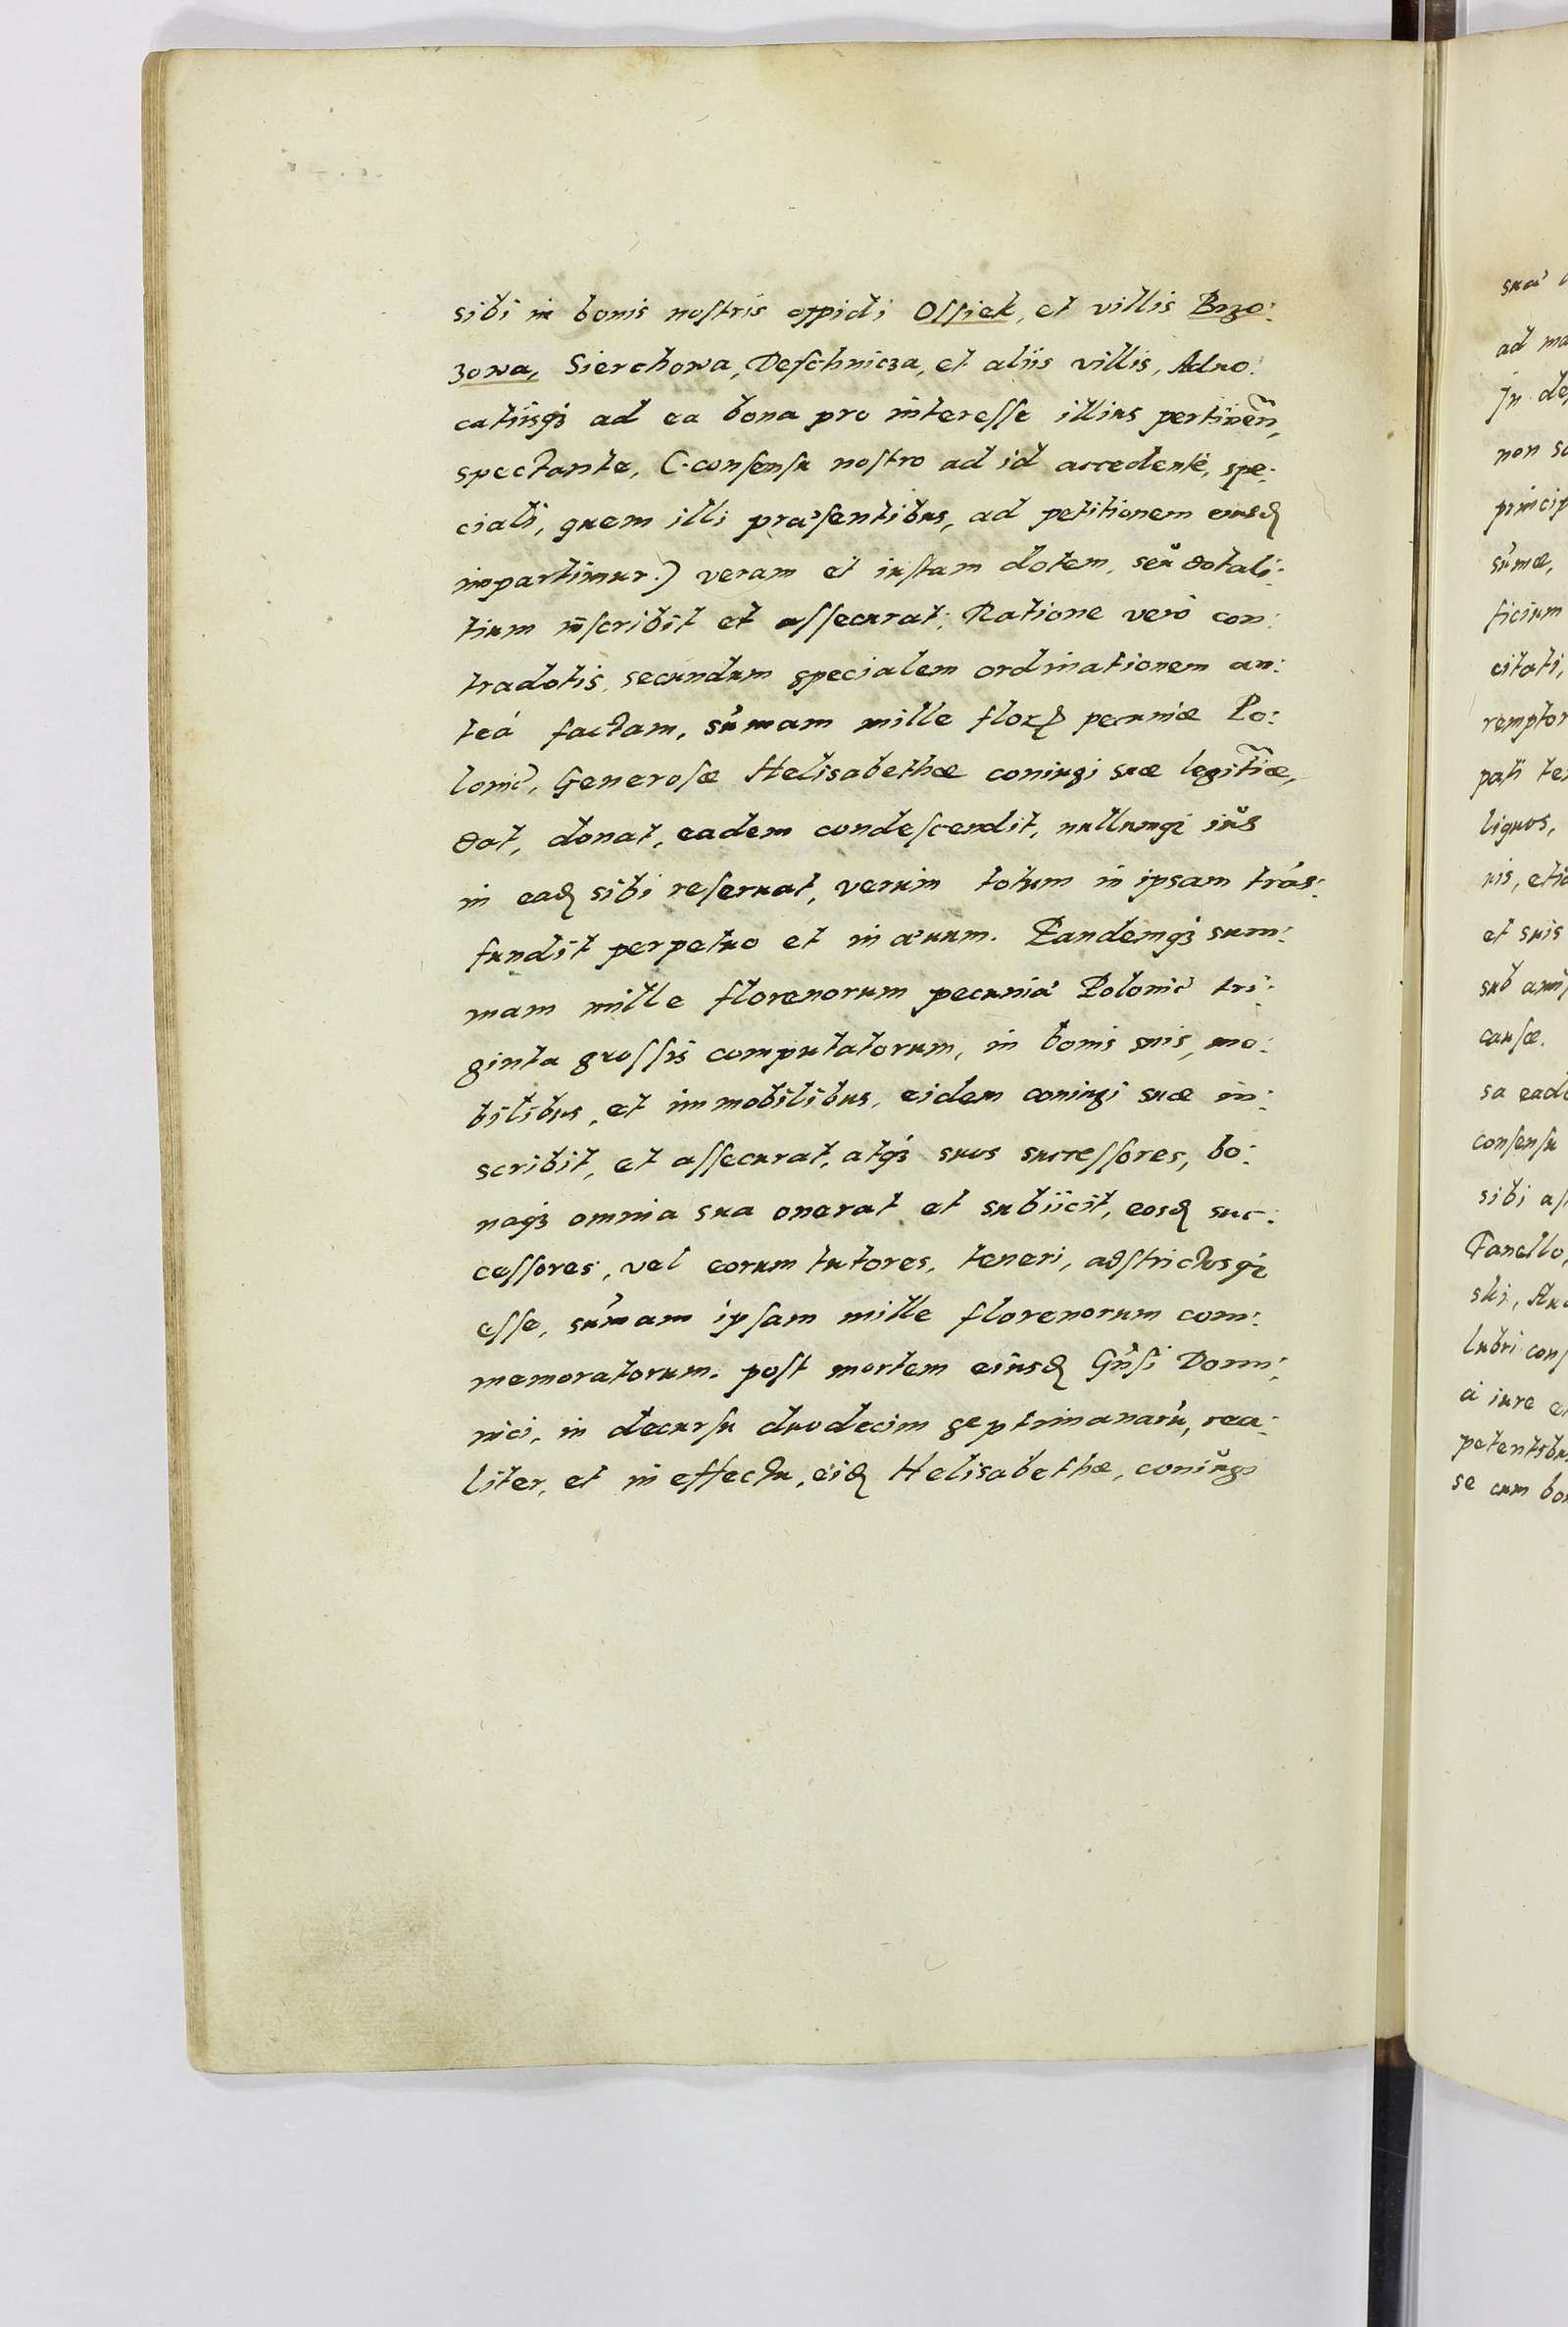 sibi in bonis nostris oppidi Ossiek, et villis Brzo:
zowa, Sierchowa, Deschnicza, et aliis villis, Aduo:
catiisq3 ad ea bona pro interesse illius pertineñ,
spectante, C. consensu nostro ad id accedente, spe:
ciali, quem illi præsentibus, ad petitionem eiusd
impartimur.) veram et iustam dotem, seu dotali:
tium inscribit et assecurat: Ratione verò con:
tradotis, secundum specialem ordinationem an:
teá factam, sum̃am mille flor pecuniæ Po:
lonic, Generosæ Helisabethæ coniugi suæ legitiæ,
dat, donat, eadem condescendit, nullumq3 ius
in ead sibi reseruat, verum totum in ipsam trás:
fundit perpetuo et in æuum. Eandemq3 sum:
mam mille florenorum pecunia Polonic tri:
ginta grossis computatorum, in bonis suis, mo:
bilibus, et immobilibus, eidem coniugi suæ in:
scribit, et assecurat, atq3 suos successores, bo:
naq3 omnia sua onerat et subiicit, eosd suc:
cessores, vel eorum tutores, teneri, adstrictosq3
esse, sum̃am ipsam mille florenorum com:
memoratorum. post mortem eiusd Gñsi Domi:
nici, in decursu duodecim septimanarũ, rea:
liter, et in effectu, eid Helisabethæ, coniugi
sua
ad ma
Jn de
non so
princip
sum̃æ,
ficium
citati,
remptor
pati te
liquos,
uis, etia
et suis
sub
causæ.
sa ead
consensu
sibi as
Tanello,
ski,
lubri cons
a iure e
petentibu
se cum bo